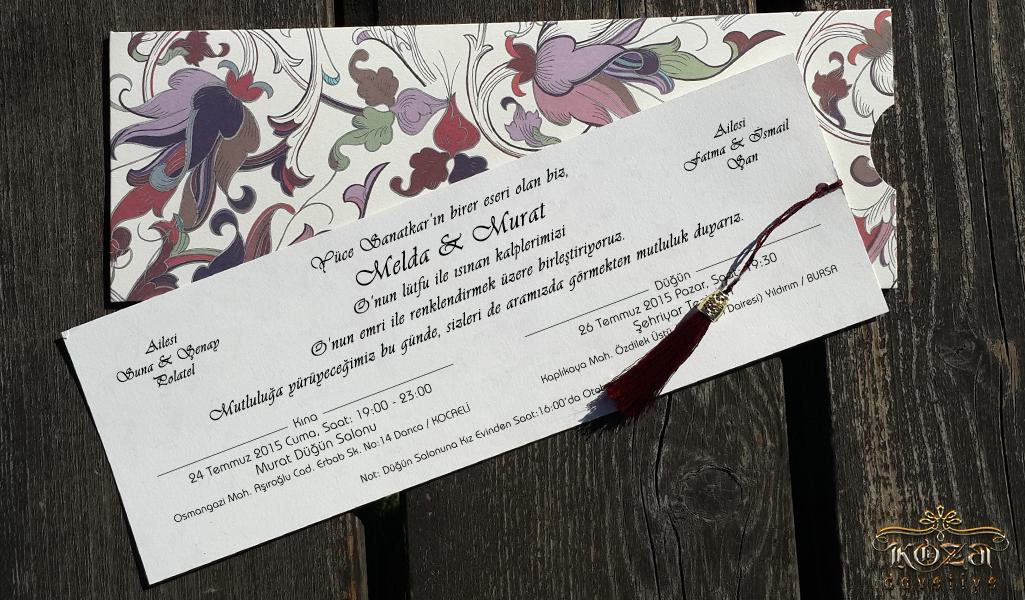 Yüce Sanatkar'ın birer eseri olan biz,
Melda & Murat
O'nun lütfu ile ısınan kalplerimizi
O'nun emri ile renklendirmek üzere birleştiriyoruz.
Mutluluğa yürüyeceğimiz bu günde, sizleri de aramızda görmekten mutluluk duyarız.
Ailesi
Suna & Şenay
Polatel
Ailesi
Fatma & İsmail
Şan
Kına
24 Temmuz 2015 Cuma, Saat: 19:00 - 23:00
Murat Düğün Salonu
Osmangazi Mah. Aşıroğlu Cad. Erbab Sk. No:14 Darıca / KOCAELİ
Düğün
26 Temmuz 2015 Pazar, 19:30
Şehriyar
Kaplıkaya Mah. Özdilek Üstü Dairesi) Yıldırım / BURSA
Not: Düğün Salonuna Kız Evinden Saat:16:00'da
koza
davetiye